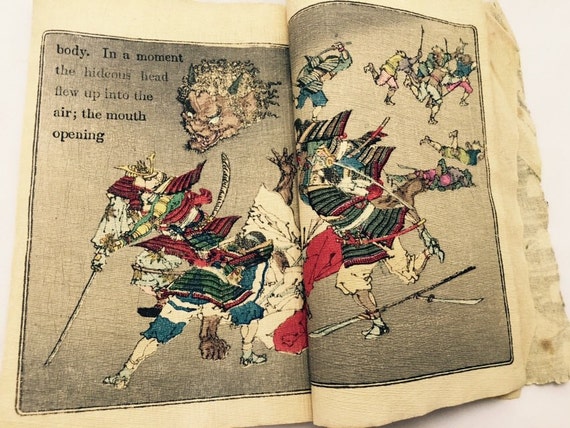 body. In a moment
the hideous head
flew up into the
air; the mouth
opening